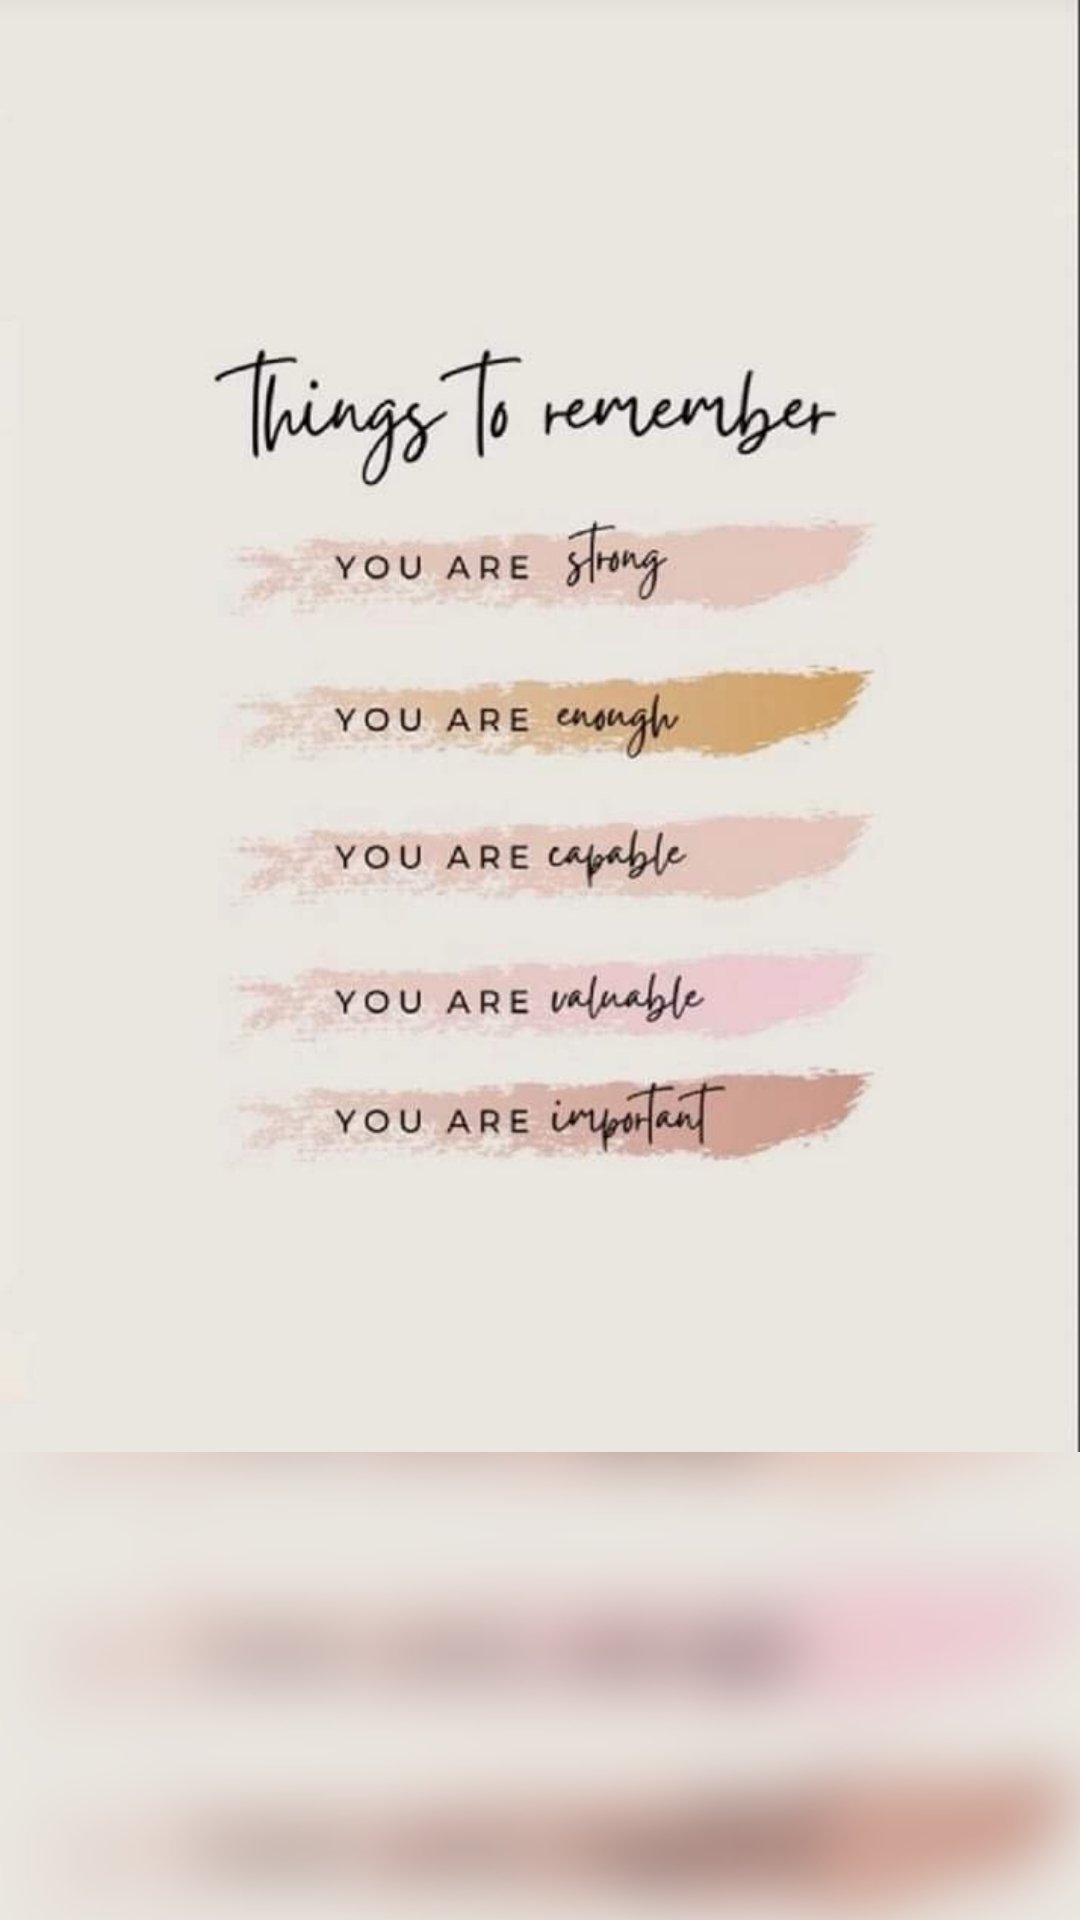 Things To remember
YOU ARE strong
YOU ARE enough
YOU ARE capable
YOU ARE valuable
YOU ARE important